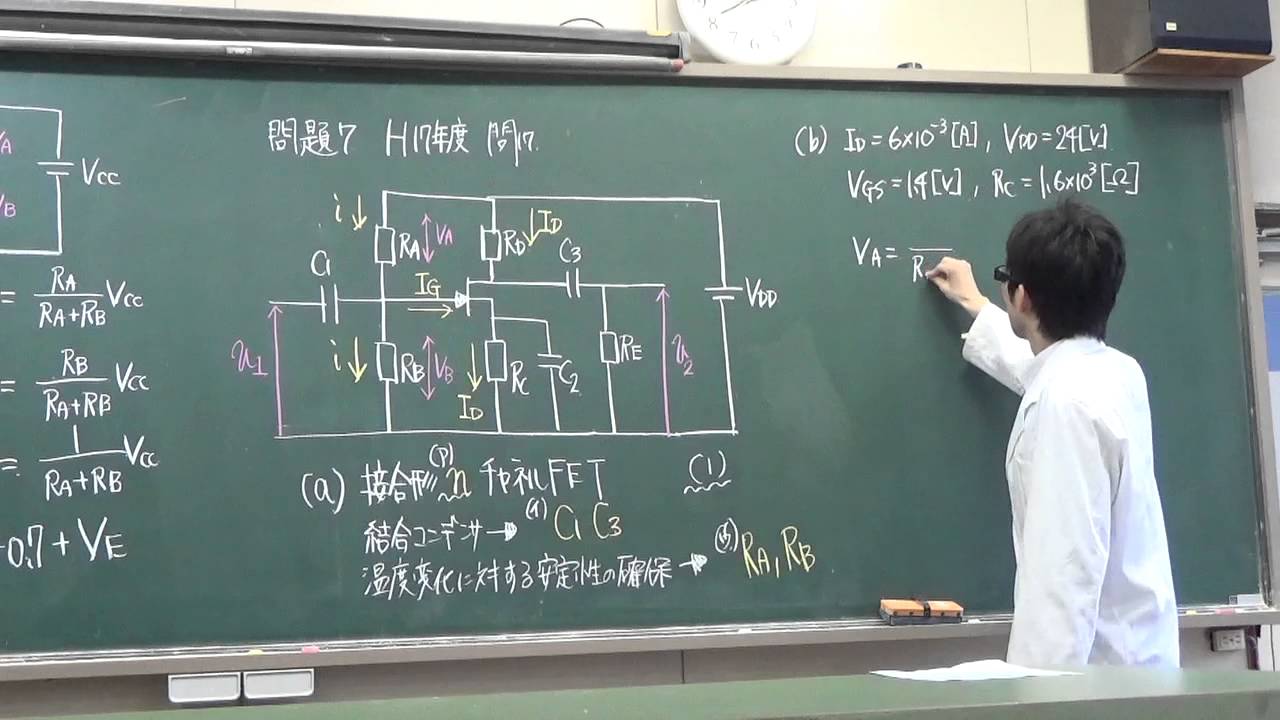 問題7 H17年度 問17.
VA
VCC
VB
= RA/RA+RB VCC
= RB/RA+RB VCC
= 1/RA+RB VCC
0.7+VE
i
RA
VA
RD
ID
C3
C1
IG
VDD
u1
i
RB
VB
RC
C2
RE
u2
ID
(a) 接合形 (ア) n チャネルFET (1)
結合コンデンサ→ (イ) C1 C3
温度変化に対する安定性の確保→ (ウ) RA, RB
(b) ID=6×10⁻³[A], VDD=24[V]
VGS=1.4[V], RC=1.6×10³[Ω]
VA= /R